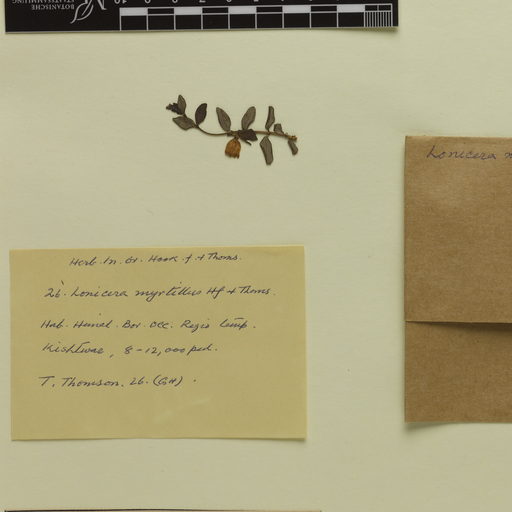 BOTANISCHE
STAATSSAMMLUNG
Lonicera
Herb. In. Or. Hook. f. + Thoms.
26. Lonicera myrtillus Hf + Thoms.
Hab. Himal. Bor. Occ. Regio temp.
Kishtwar, 8-12,000 ped.
T. Thomson. 26. (GH).